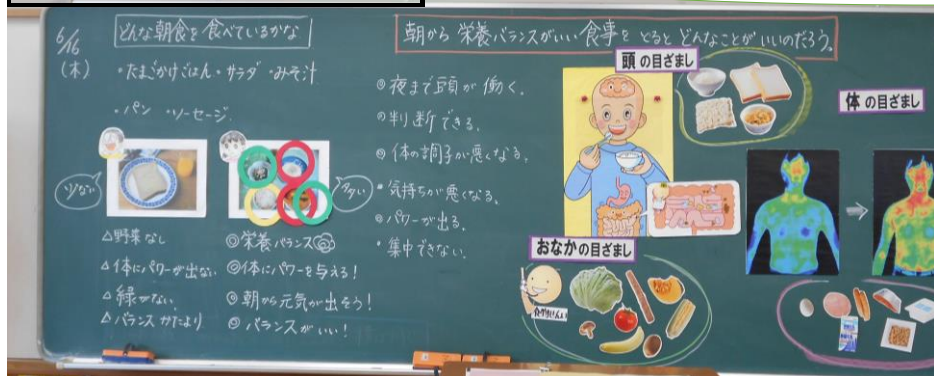 6/16
(木)
どんな朝食を食べているかな
・たまごかけごはん・サラダ・みそ汁
・パン ・ソーセージ
少ない
多い
△野菜なし
△体にパワーが出ない
△緑がない
△バランスかたより
◎栄養バランス◎
◎体にパワーを与える!
◎朝から元気が出そう!
◎バランスがいい!
朝から栄養バランスがいい食事をとるとどんなことがいいのだろう。
◎夜まで頭が働く。
◎判断できる。
◎体の調子が悪くなる。
・気持ちが悪くなる。
◎パワーが出る。
・集中できない。
頭の目ざまし
体の目ざまし
おなかの目ざまし